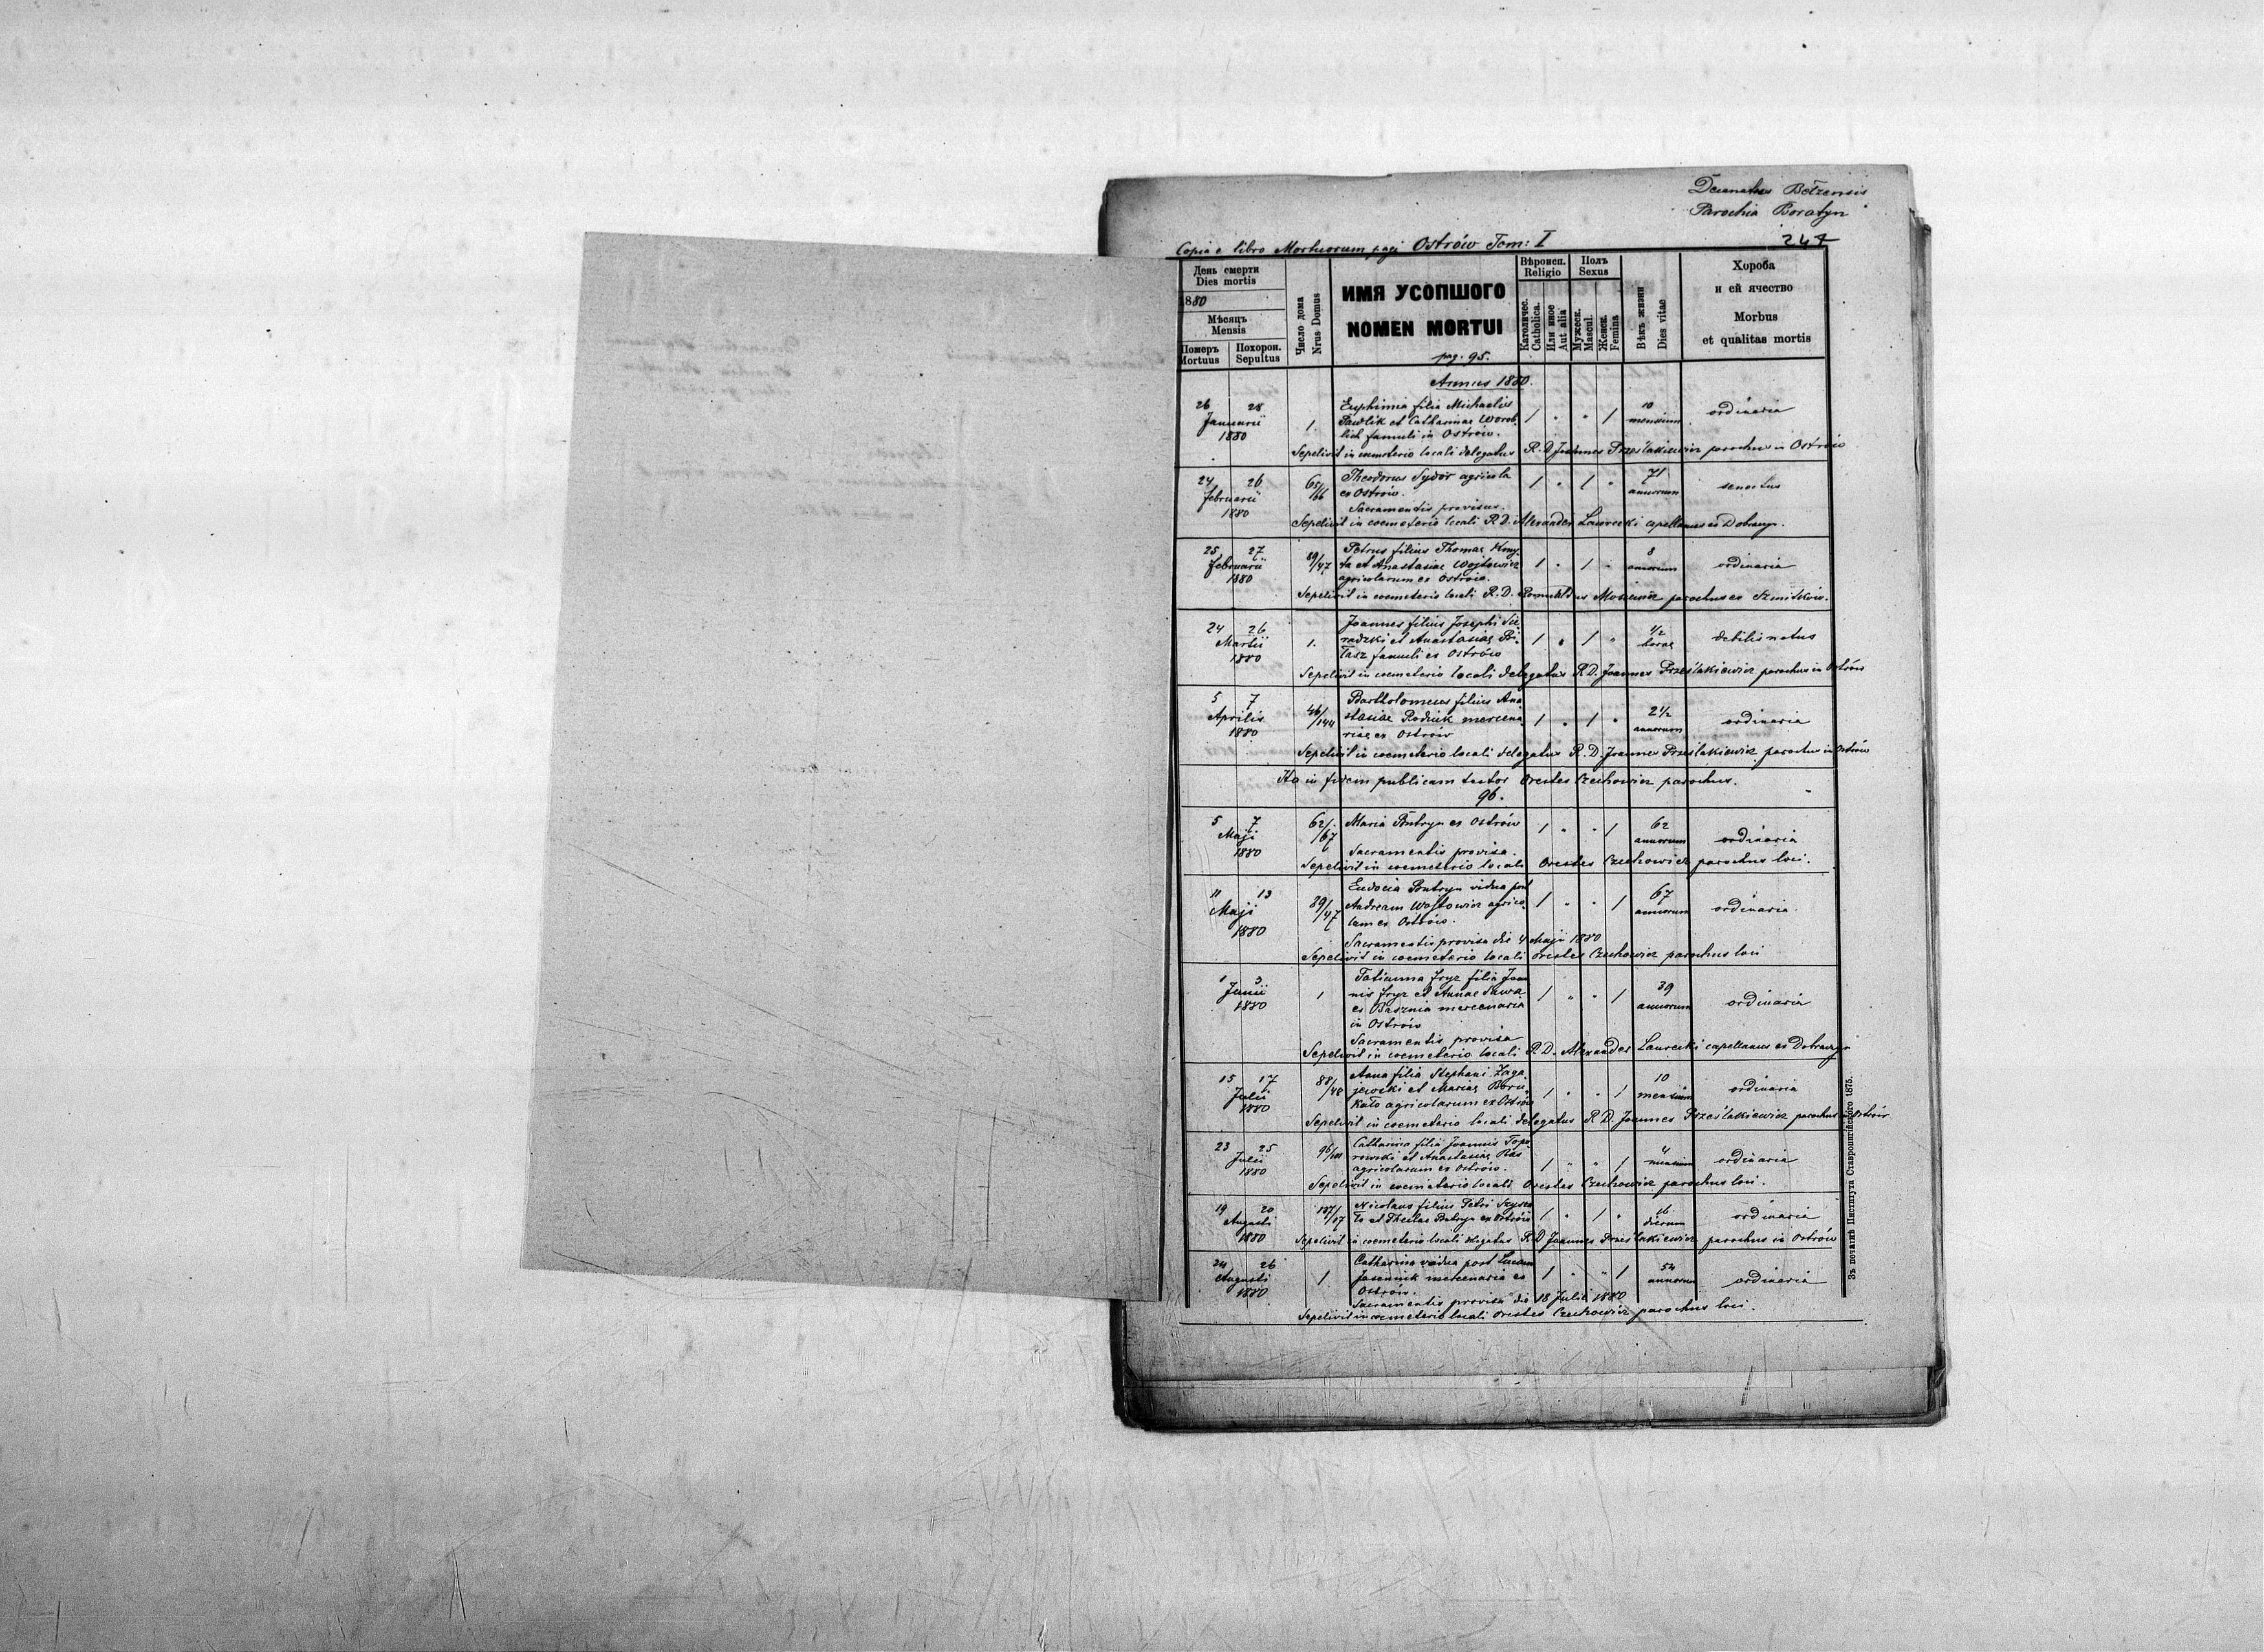 Decanatus Bełzensis
Parochia Boratyn
247
Copia e libro Mortuorum pagi Ostrów Tom: I
День смерти
Dies mortis
1880
Мѣсяць
Mensis
Померъ
Mortuus
Похорон.
Sepultus
Число дома
Nrus Domus
ИМЯ УСОПШОГО
NOMEN MORTUI
pag. 95.
Вѣроисп.
Religio
Католичес.
Catholica.
Или иное
Aut alia
Полъ
Sexus
Мужеск.
Mascul.
Женск.
Femina
Вѣкъ жизни
Dies vitae
Хороба
и ей ячество
Morbus
et qualitas mortis
Annus 1880.
26 28
Januarii
1880
1.
Euphimia filia Michaelis
Pawlik et Catharinae Worob
lich famuli in Ostrów.
1 " " 1
10
mensium
ordinaria
Sepelivit in coemeterio locali delegatus R. D Joannes Prześlakiewicz parochus in Ostrów
24 26
februarii
1880
65/66
Theodorus Sydor agricola
ex Ostrów.
Sacramentis provisus.
1 " 1 "
71
annorum
senectus
Sepelivit in coemeterio locali R. D. Alexander Laurecki capellanus ex Dobraczyn.
25 27
februarii
1880
89/47
Petrus filius Thomae Kmy-
ta et Anastasiae Wojtowicz
agricolarum ex Ostrów.
1 " 1 "
8
annorum
ordinaria
Sepelivit in coemeterio locali R. D. Romualdus parochus ex
24 26
Martii
1880
1.
Joannes filius Josephi Sie-
radzki et Anastasiae Pi-
łasz famuli ex Ostrów
1 " 1 "
1/2
horae
debilis natus
Sepelivit in coemeterio locali delegatus R. D. Joannes Prześlakiewicz parochus in Ostrów
5 7
Aprilis
1880
46/144
Bartholomeus filius Ana
stasiae Rodzik mercena
riae ex Ostrów
1 " 1 "
2 1/2
annorum
ordinaria
Sepelivit in coemeterio locali delegatus R. D. Joannes Prześlakiewicz parochus in Ostrów
Ita in fidem publicam testor Orestes Czechowicz parochus.
96.
5 7
Maji
1880
62/67
Maria Putryn ex Ostrów
Sacramentis provisa.
1 " " 1
62
annorum
ordinaria
Sepelivit in coemeterio locali Orestes Czechowicz parochus loci.
11 13
Maji
1880
89/47
Eudocia Putryn vidua post
Andream Wojtowicz agrico-
lam ex Ostrów.
1 " " 1
67
annorum
ordinaria
Sacramentis provisa die 4 Maji 1880
Sepelivit in coemeterio locali Orestes Czechowicz parochus loci
1 3
Junii
1880
1
Tatianna fryz filia Joan
nis fryz et Annae Sawa
ex Basznia mercenaria
in Ostrów
Sacramentis provisa
1 " " 1
39
annorum
ordinaria
Sepelivit in coemeterio locali R. D. Alexander Laurecki capellanus ex Dobraczyn
15 17
Julii
1880
88/48
Anna filia Stephani Zaga-
jewski et Mariae Boru-
kało agricolarum ex Ostrów
1 " " 1
10
mensium
ordinaria
Sepelivit in coemeterio locali delegatus R. D. Joannes Prześlakiewicz parochus in Ostrów
23 25
Julii
1880
Catharina filia Joannis Topo-
rowski et Anastasiae Baś
agricolarum ex Ostrów.
1 " " 1
4
mensium
ordinaria
Sepelivit in coemeterio locali Orestes Czechowicz parochus loci.
19 20
Augusti
1880
Nicolaus filius Petri
et Theclae Putryn ex Ostrów
1 " 1 "
16
dierum
ordinaria
Sepelivit in coemeterio locali delegatus R. D Joannes Prześlakiewicz parochus in Ostrów
24 26
Augusti
1880
1.
Catharina vidua post Lucam
Jasennik mercenaria ex
Ostrów.
1 " " 1
54
annorum
ordinaria
Sacramentis provisa die 18 Julii 1880
Sepelivit in coemeterio locali Orestes Czechowicz parochus loci.
Зъ печатнѣ Института Ставропигійского 1875.